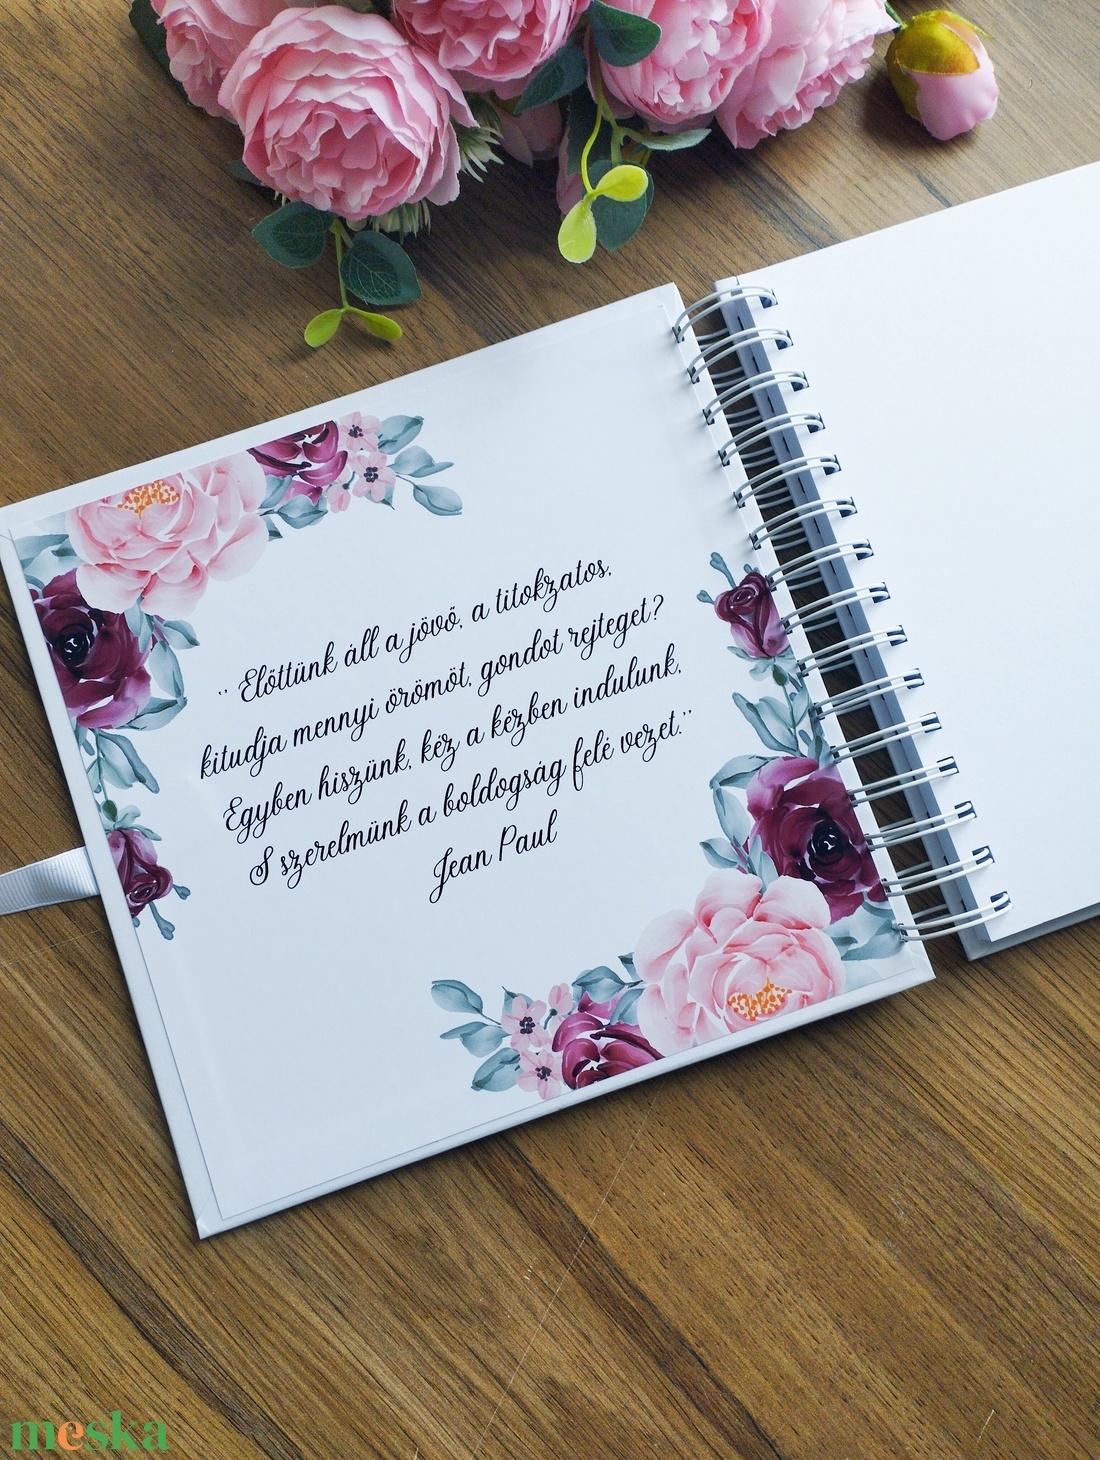 " Előttünk áll a jövő, a titokzatos,
kitudja mennyi örömöt, gondot rejteget?
Egyben hiszünk, kéz a kézben indulunk,
S szerelmünk a boldogság felé vezet."
Jean Paul
meska